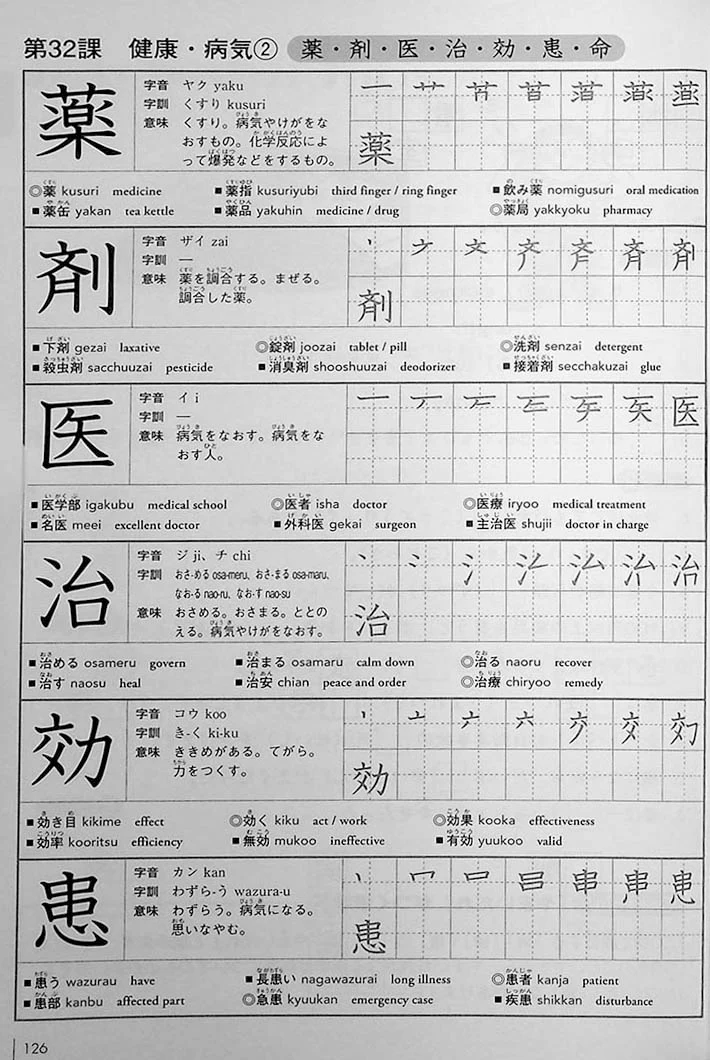 第32課 健康・病気② 薬・剤・医・治・効・患・命
薬
字音 ヤク yaku
字訓 くすり kusuri
意味 くすり。病気やけがをな
おすもの。化学反応によ
って爆発などをするもの。
◎薬 kusuri medicine ■薬指 kusuriyubi third finger / ring finger ■飲み薬 nomigusuri oral medication
■薬缶 yakan tea kettle ■薬品 yakuhin medicine / drug ◎薬局 yakkyoku pharmacy
剤
字音 ザイ zai
字訓 —
意味 薬を調合する。まぜる。
調合した薬。
■下剤 gezai laxative ◎錠剤 joozai tablet / pill ◎洗剤 senzai detergent
■殺虫剤 sacchuuzai pesticide ■消臭剤 shooshuuzai deodorizer ■接着剤 secchakuzai glue
医
字音 イ i
字訓 —
意味 病気をなおす。病気をな
おす人。
■医学部 igakubu medical school ◎医者 isha doctor ◎医療 iryoo medical treatment
■名医 meei excellent doctor ■外科医 gekai surgeon ■主治医 shujii doctor in charge
治
字音 ジ ji、チ chi
字訓 おさ-める osa-meru、おさ-まる osa-maru、
なお-る nao-ru、なお-す nao-su
意味 おさめる。おさまる。ととの
える。病気やけがをなおす。
■治める osameru govern ■治まる osamaru calm down ◎治る naoru recover
■治す naosu heal ■治安 chian peace and order ◎治療 chiryoo remedy
効
字音 コウ koo
字訓 き-く ki-ku
意味 ききめがある。てがら。
力をつくす。
■効き目 kikime effect ◎効く kiku act / work ◎効果 kooka effectiveness
■効率 kooritsu efficiency ■無効 mukoo ineffective ■有効 yuukoo valid
患
字音 カン kan
字訓 わずら-う wazura-u
意味 わずらう。病気になる。
思いなやむ。
■患う wazurau have ■長患い nagawazurai long illness ◎患者 kanja patient
■患部 kanbu affected part ◎急患 kyuukan emergency case ■疾患 shikkan disturbance
126